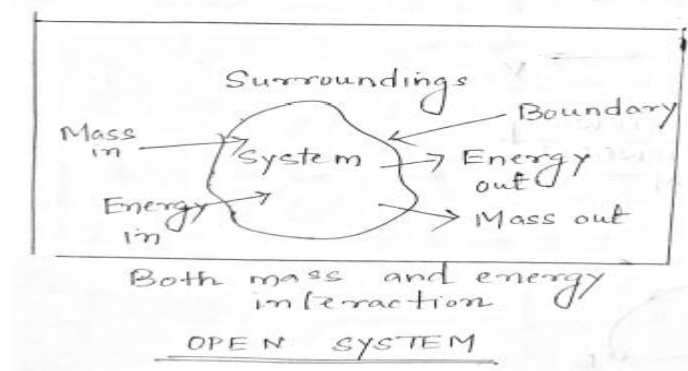 Surroundings
Boundary
Mass
in
System
Energy
out
Energy
in
Mass out
Both mass and energy
interaction
OPEN SYSTEM